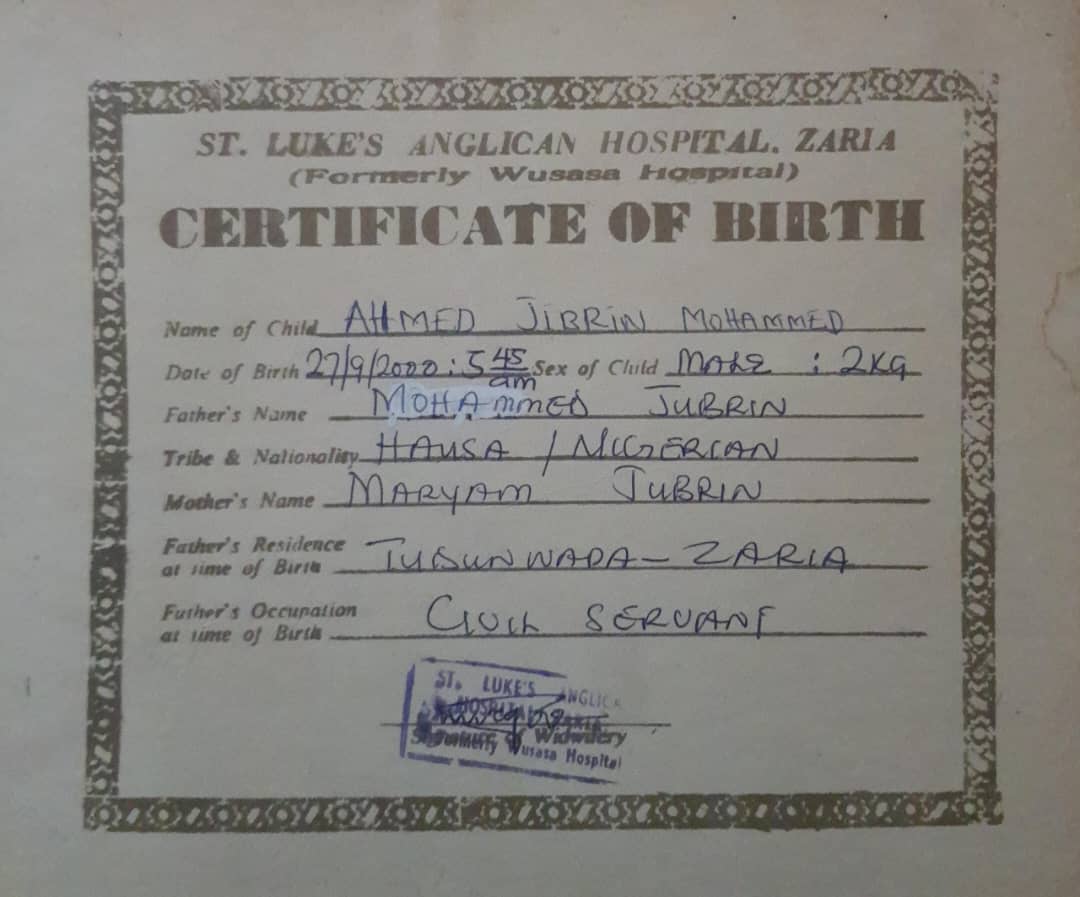 ST. LUKE'S ANGLICAN HOSPITAL, ZARIA
(Formerly Wusasa Hospital)
CERTIFICATE OF BIRTH
Name of Child AHMED JIBRIN MOHAMMED
Date of Birth 27/9/2000 : 5 45 am Sex of Child MALE : 2KG
Father's Name MOHAMMED JUBRIN
Tribe & Nationality HAUSA / NIGERIAN
Mother's Name MARYAM JUBRIN
Father's Residence
at time of Birth TUDUN WADA - ZARIA
Father's Occupation
at time of Birth CIVIL SERVANT
ST. LUKE'S ANGLICA
HOSPITAL ZARIA
Formerly Wusasa Hospital